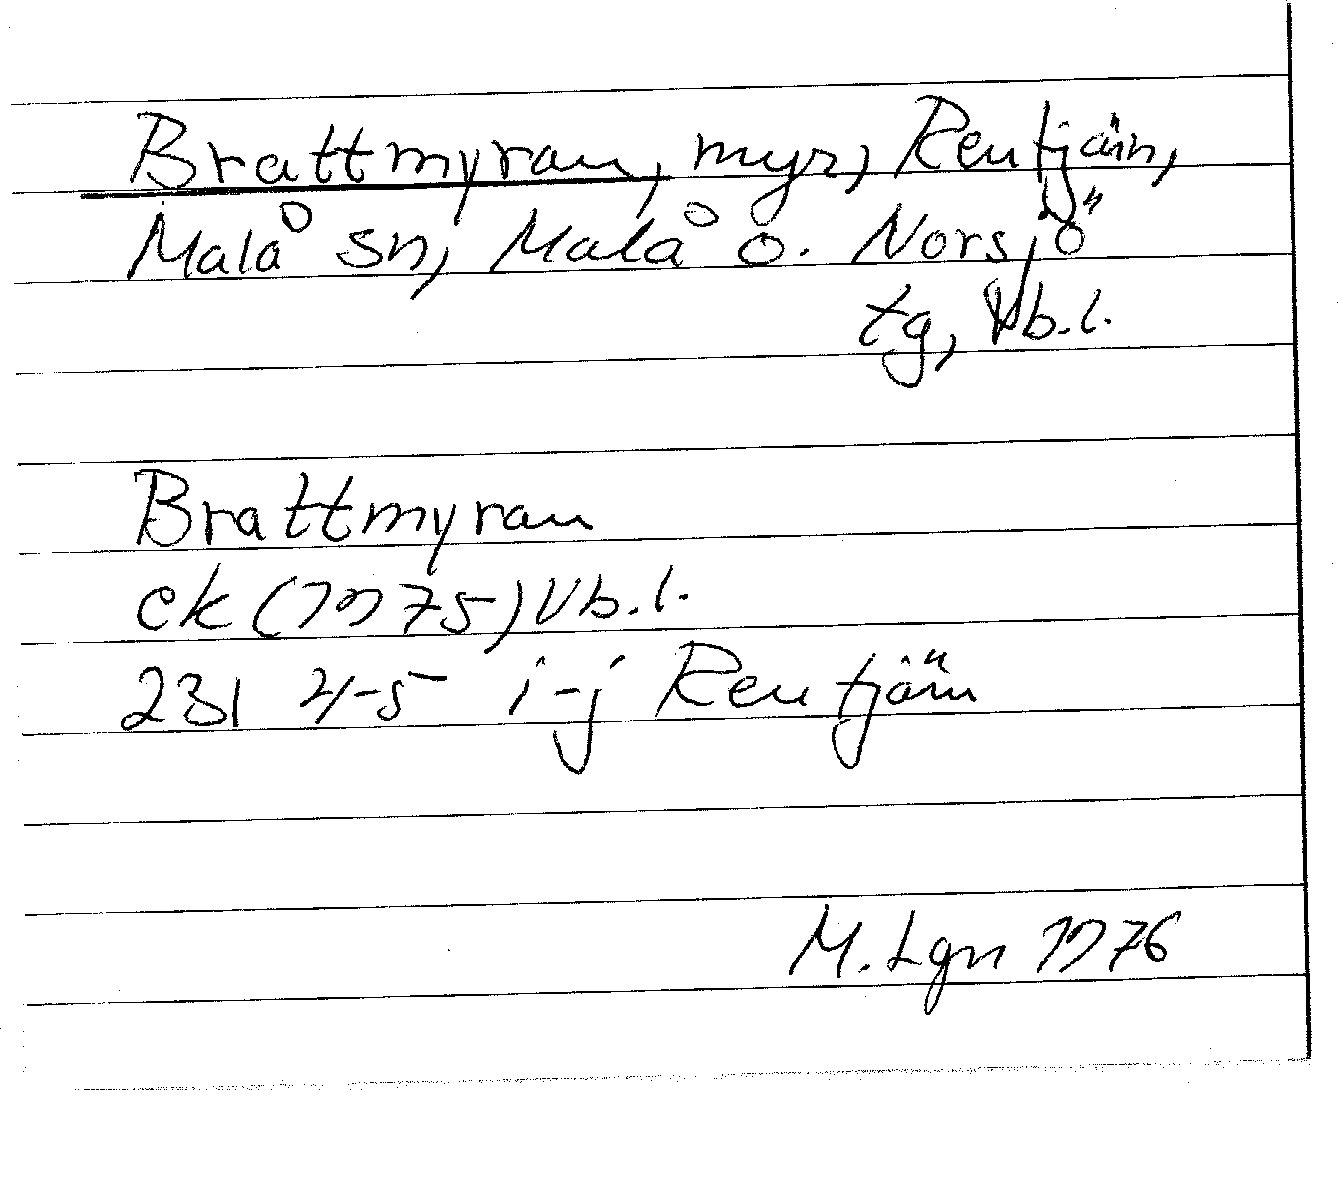 Brattmyran, myr, Rentjärn,
Malå sn, Malå o. Norsjö
tg, Vb.l.
Brattmyran
ek (1975) Vb.l.
231 4-5 i-j Rentjärn
M. Lgn 1976